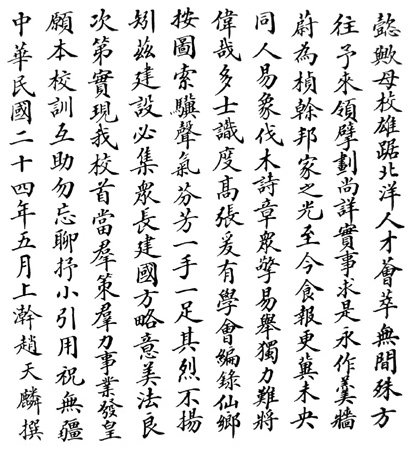 懿歟母校雄踞北洋人才薈萃無間殊方
往予來領擘劃尚詳實事求是永作羹牆
蔚為楨榦邦家之光至今食報更冀未央
同人易象伐木詩章眾擎易舉獨力難將
偉哉多士識度高張爰有學會編錄仙鄉
按圖索驥聲氣芬芳一手一足其烈不揚
矧茲建設必集眾長建國方略意美法良
次第實現我校首當羣策羣力事業發皇
願本校訓互助勿忘聊抒小引用祝無疆
中華民國二十四年五月上澣趙天麟撰